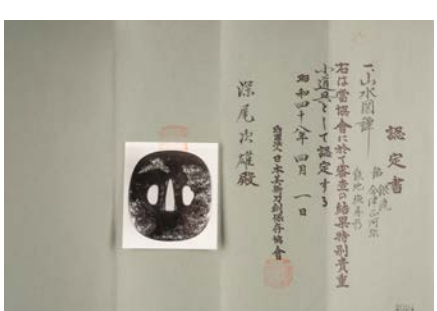 認定書
一、山水圖鐔
銘 銀先
會津正阿弥
鉄地
右は當協會に於て審査の結果特別貴重
小道具として認定する
昭和四十八年四月一日
財團法人日本美術刀剣保存協會
深尾次雄殿